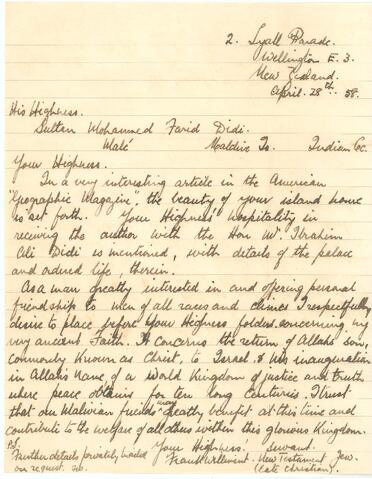 2. Lyall Parade.
Wellington E. 3.
New Zealand.
April. 28th. 58.
His Highness.
Sultan Mohammed Farid Didi.
Malé Maldive Is. Indian Oc.
Your Highness.
In a very interesting article in the American
"Geographic Magazine", the beauty of your island home
is set forth. Your Highness' hospitality in
receiving the author with the Hon Mr. Ibrahim
Ali Didi is mentioned, with details of the palace
and ordered life, therein.
As a man greatly interested in and offering personal
friendship to men of all races and climes I respectfully
desire to place before Your Highness folders concerning my
very ancient Faith. It concerns the return of Allah's son,
commonly known as Christ, to Israel & His inauguration
in Allah's name of a world Kingdom of justice and truth
where peace obtains for ten long centuries. I trust
that our Maldivian friends may greatly benefit at this time and
contribute to the welfare of all others within this glorious Kingdom.
P.S. Your Highness' Servant.
Further details privately mailed New Testament Jew.
on request. (late Christian).